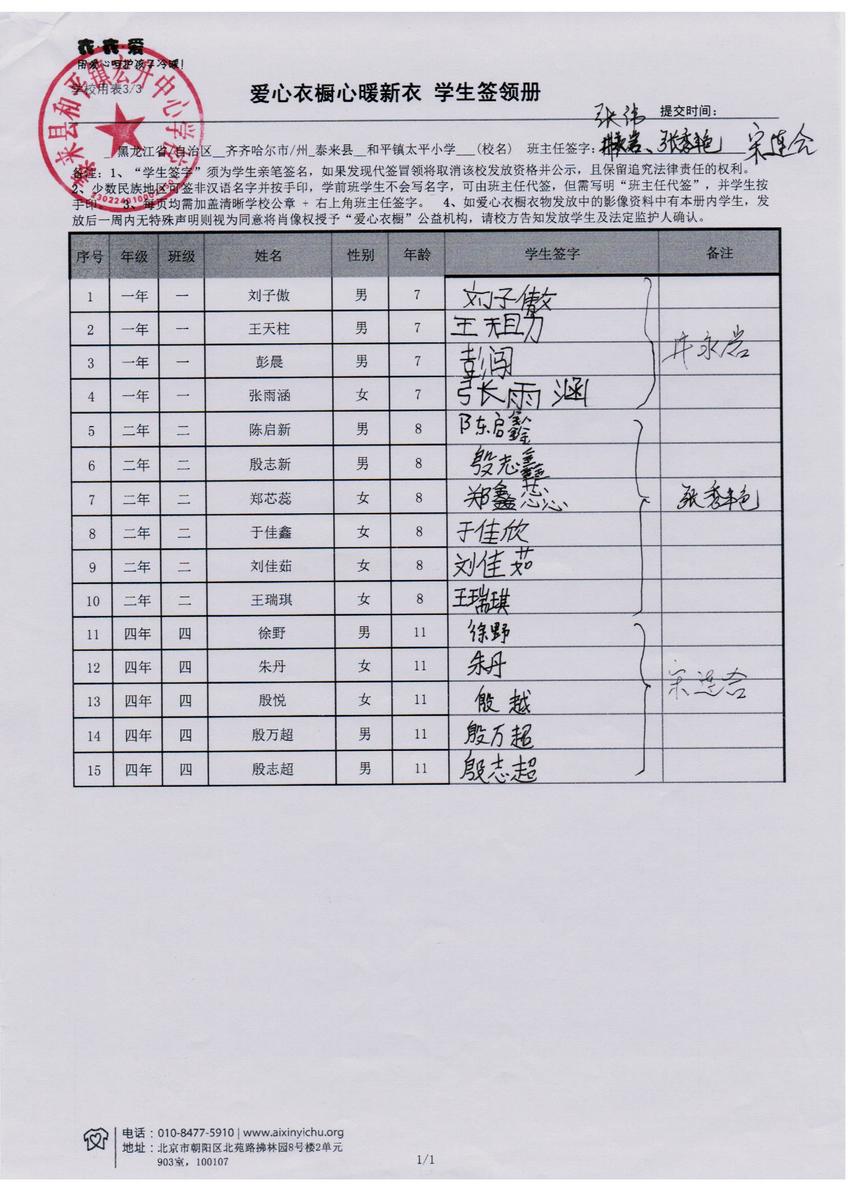 用爱心呵护孩子冷暖!
学校用表3/3
爱心衣橱心暖新衣 学生签领册
张伟 提交时间:
黑龙江省/自治区__齐齐哈尔市/州_泰来县__和平镇太平小学___(校名) 班主任签字: 井永岩、张秀艳 宋连合
备注:1、“学生签字”须为学生亲笔签名,如果发现代签冒领将取消该校发放资格并公示,且保留追究法律责任的权利。
2、少数民族地区可签非汉语名字并按手印,学前班学生不会写名字,可由班主任代签,但需写明“班主任代签”,并学生按
手印。 3、每页均需加盖清晰学校公章 + 右上角班主任签字。 4、如爱心衣橱衣物发放中的影像资料中有本册内学生,发
放后一周内无特殊声明则视为同意将肖像权授予“爱心衣橱”公益机构,请校方告知发放学生及法定监护人确认。
序号 年级 班级 姓名 性别 年龄 学生签字 备注
1 一年 一 刘子傲 男 7 刘子傲
2 一年 一 王天柱 男 7 王
井永岩
3 一年 一 彭晨 男 7 彭闯
4 一年 一 张雨涵 女 7 张雨涵
5 二年 二 陈启新 男 8 陈启鑫
6 二年 二 殷志新 男 8 殷志鑫
7 二年 二 郑芯蕊 女 8 郑鑫 张秀艳
8 二年 二 于佳鑫 女 8 于佳欣
9 二年 二 刘佳茹 女 8 刘佳茹
10 二年 二 王瑞琪 女 8 王瑞琪
11 四年 四 徐野 男 11 徐野
12 四年 四 朱丹 女 11 朱丹
宋连合
13 四年 四 殷悦 女 11 殷越
14 四年 四 殷万超 男 11 殷万超
15 四年 四 殷志超 男 11 殷志超
电话:010-8477-5910 | www.aixinyichu.org
地址:北京市朝阳区北苑路拂林园8号楼2单元
903室,100107
1/1